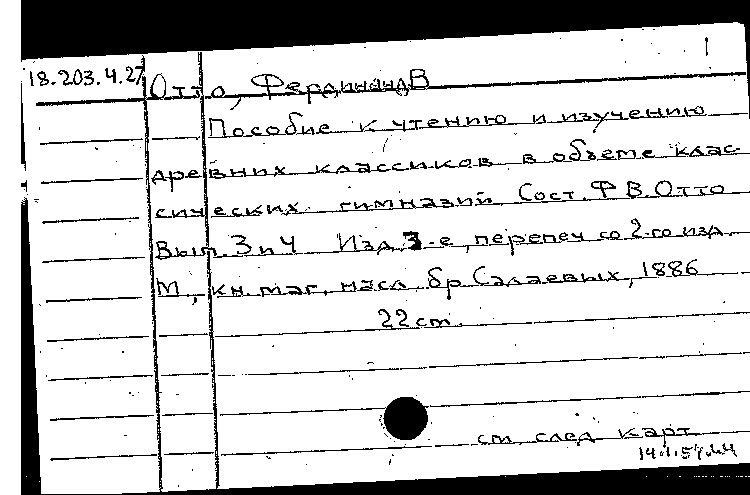 1
18.203.4.27 Отто, Фердинанд В
Пособие к чтению и изучению
древних классиков в объеме клас-
сических гимназий Сост. Ф В. Отто
Вып. 3 и 4 Изд. 3-е, перепеч со 2-го изд.
М, кн. маг, насл. бр Салаевых, 1886
22 cm.
см. след карт